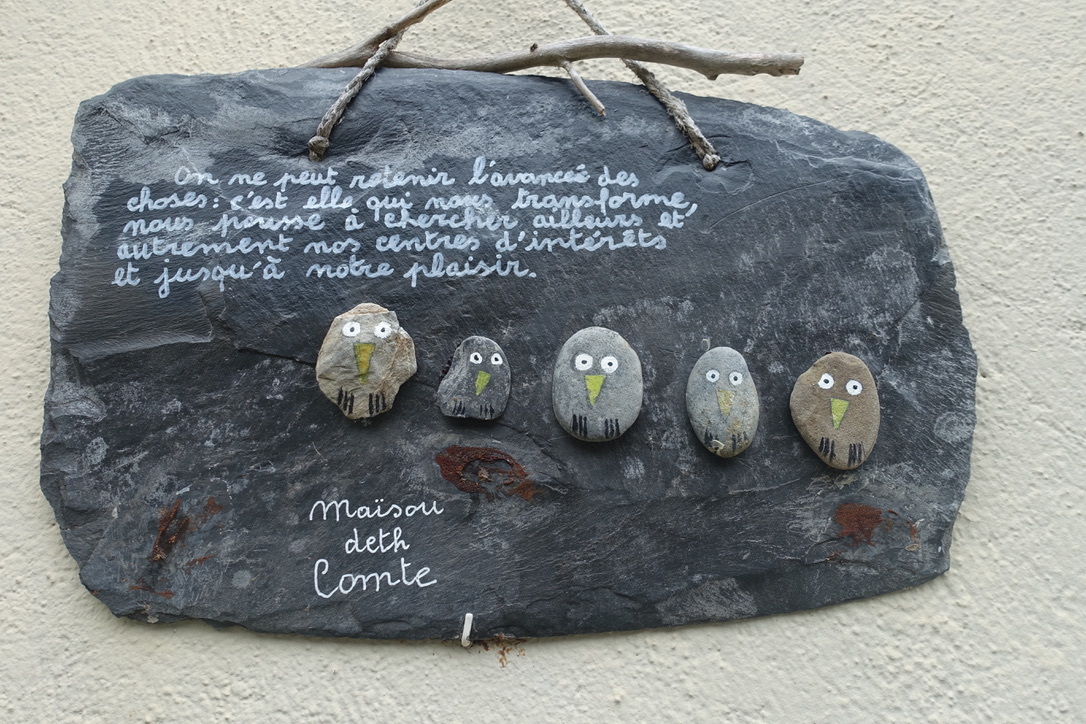 On ne peut retenir l'avancée des
choses : c'est elle qui nous transforme,
nous pousse à chercher ailleurs et
autrement nos centres d'intérêts
et jusqu'à notre plaisir.
Maïsou
deth
Comte